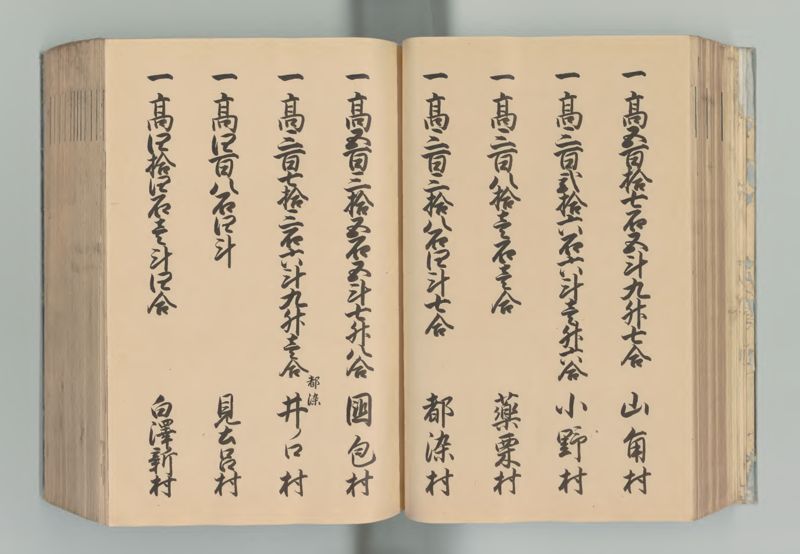 一髙五百拾七石五斗九升七合 山角村
一髙三百弐拾六石六斗壱升六合 小野村
一髙三百八拾壱石壱合 藥栗村
一髙三百三拾八石四斗七合 都染村
一髙五百三拾五石五斗七升八合 国包村
一髙三百七拾三石六斗九升壱合 都染 井ノ口村
一髙四百八石四斗 見土呂村
一髙四拾四石壱斗四合 白澤新村